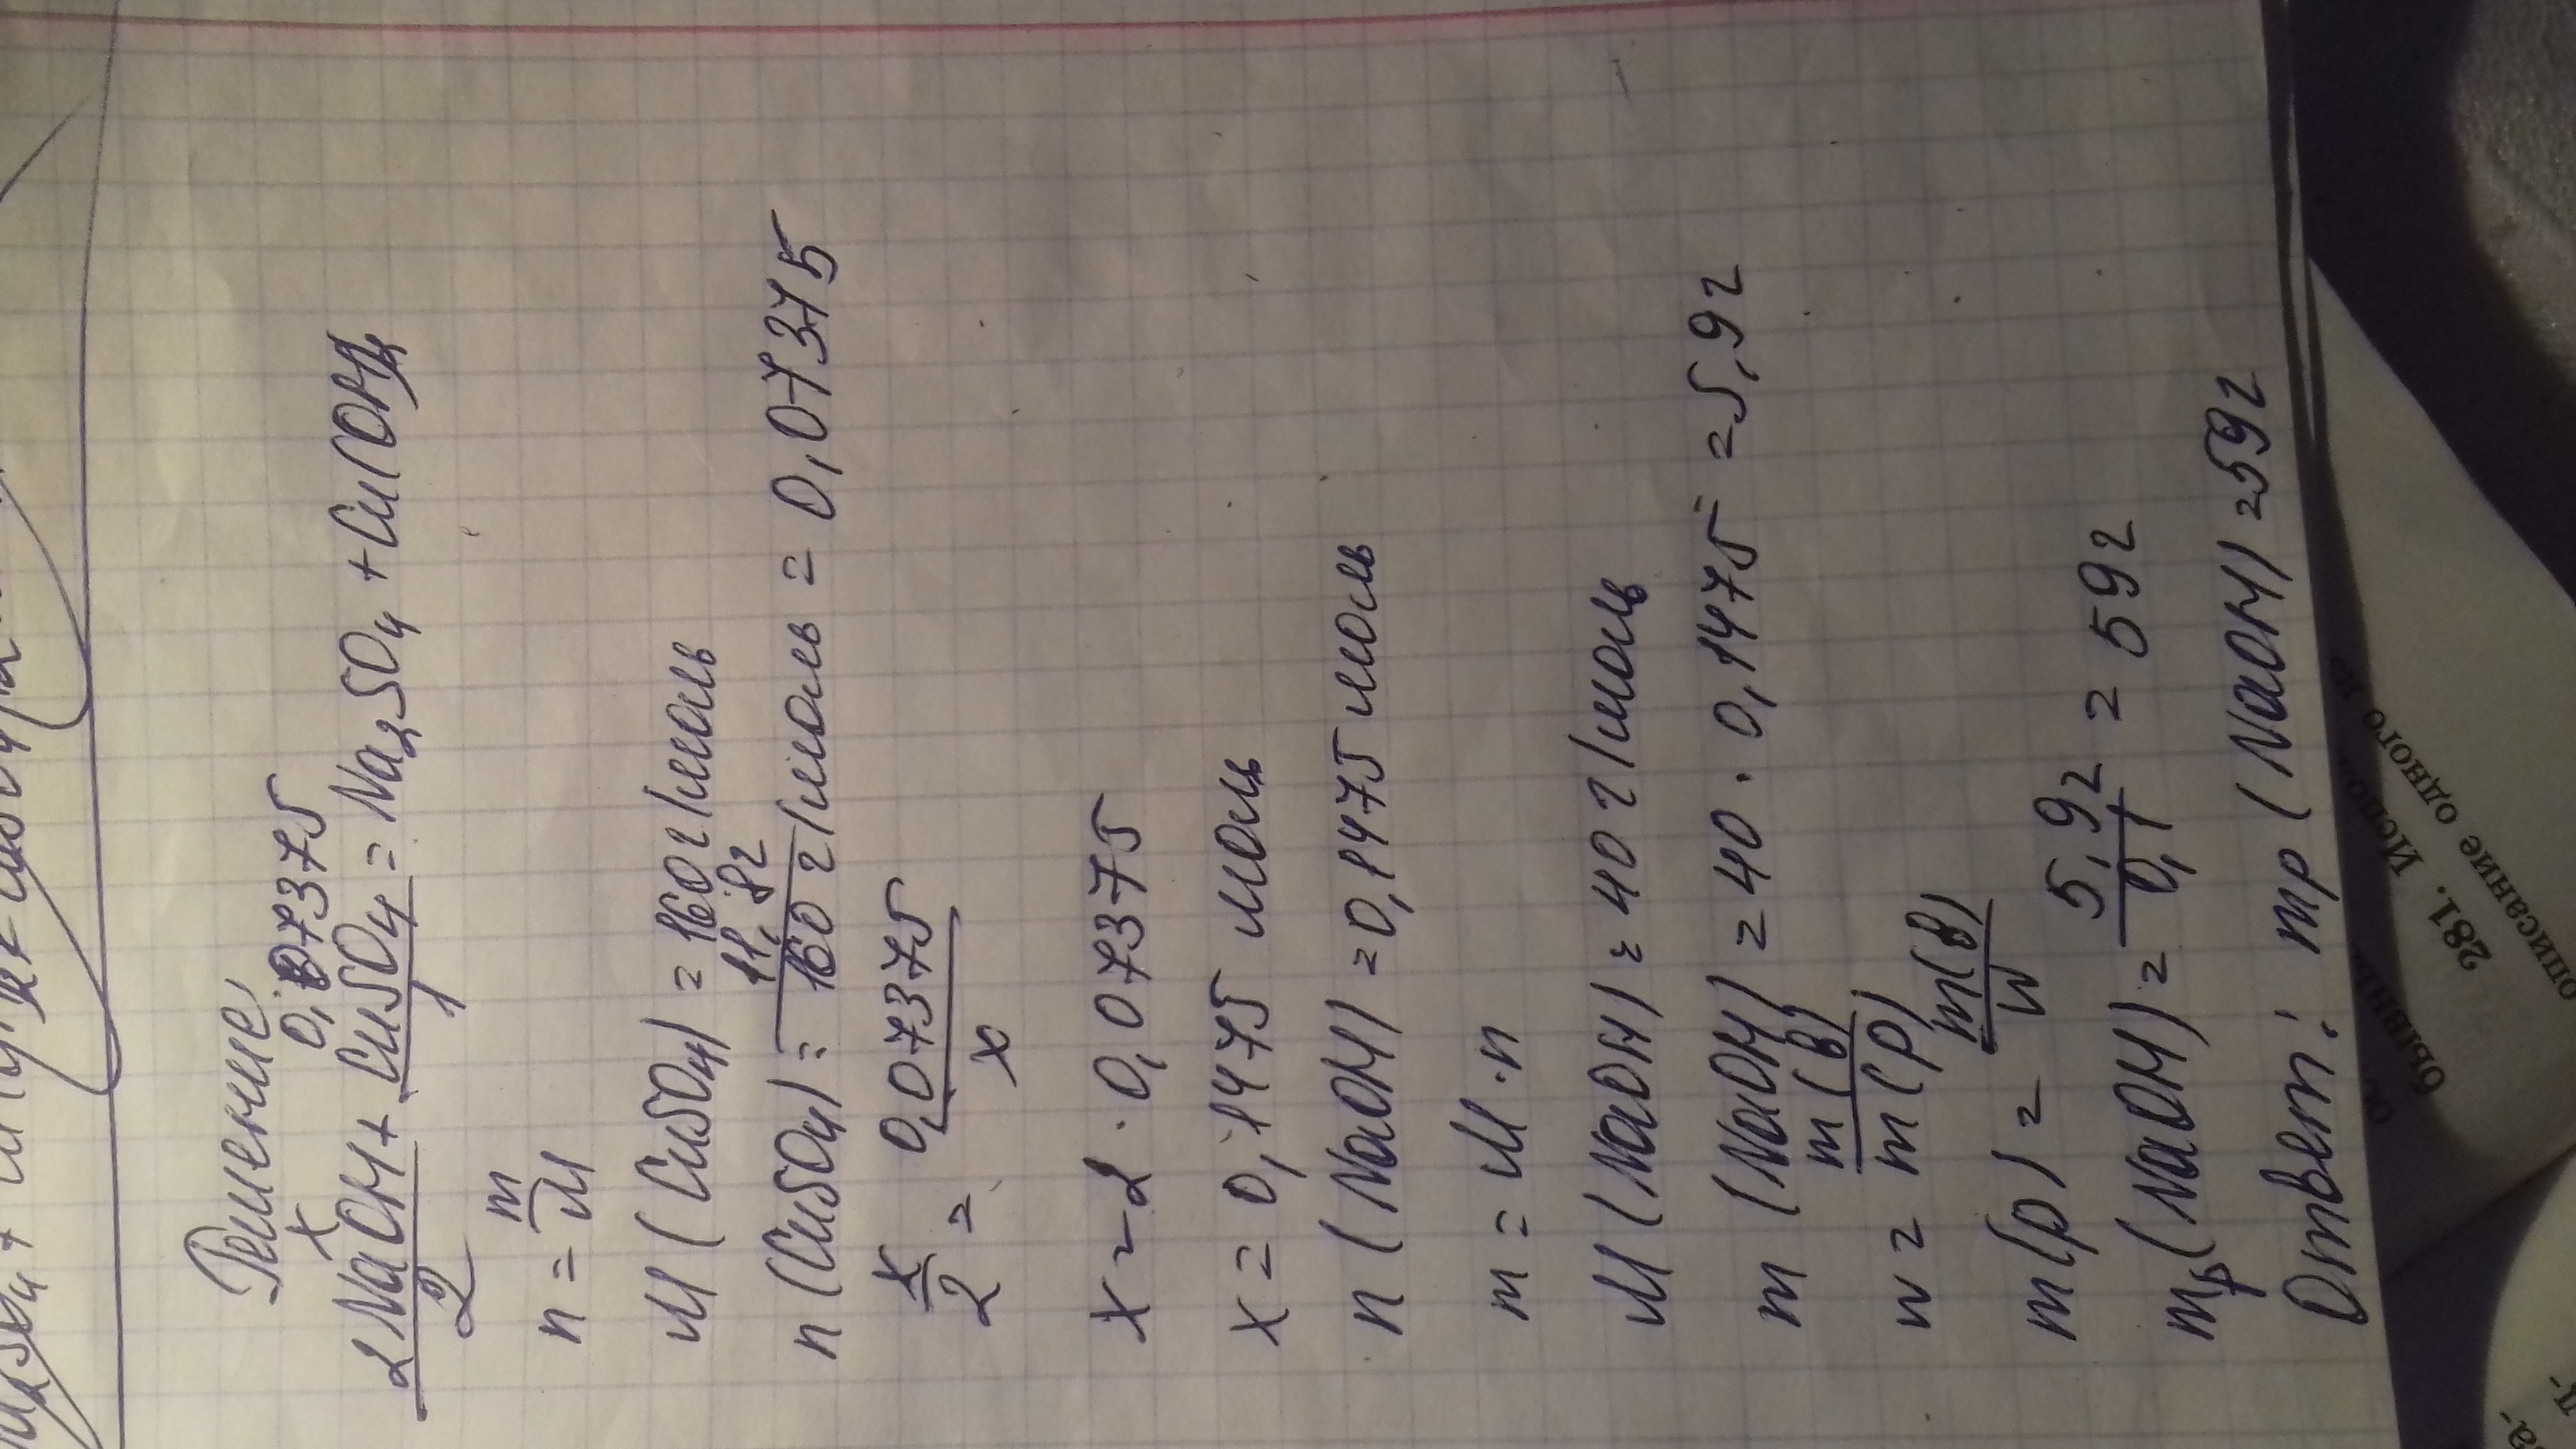 Решение
x 0,07375
2NaOH + CuSO4 = Na2SO4 + Cu(OH)2
2 1
n = m/M
M (CuSO4) = 160 г/моль
n (CuSO4) = 11,8г/160 г/моль = 0,07375
x/2 = 0,07375/x
x = 2 · 0,07375
x = 0,1475 моль
n (NaOH) = 0,1475 моль
m = M · n
M (NaOH) = 40 г/моль
m (NaOH) = 40 · 0,1475 = 5,9г
w = m(В)/m(р)
m(р) = m(В)/w
mр(NaOH) = 5,9г/0,1 = 59г
Ответ: mр (NaOH) = 59г
281.
одного
описание